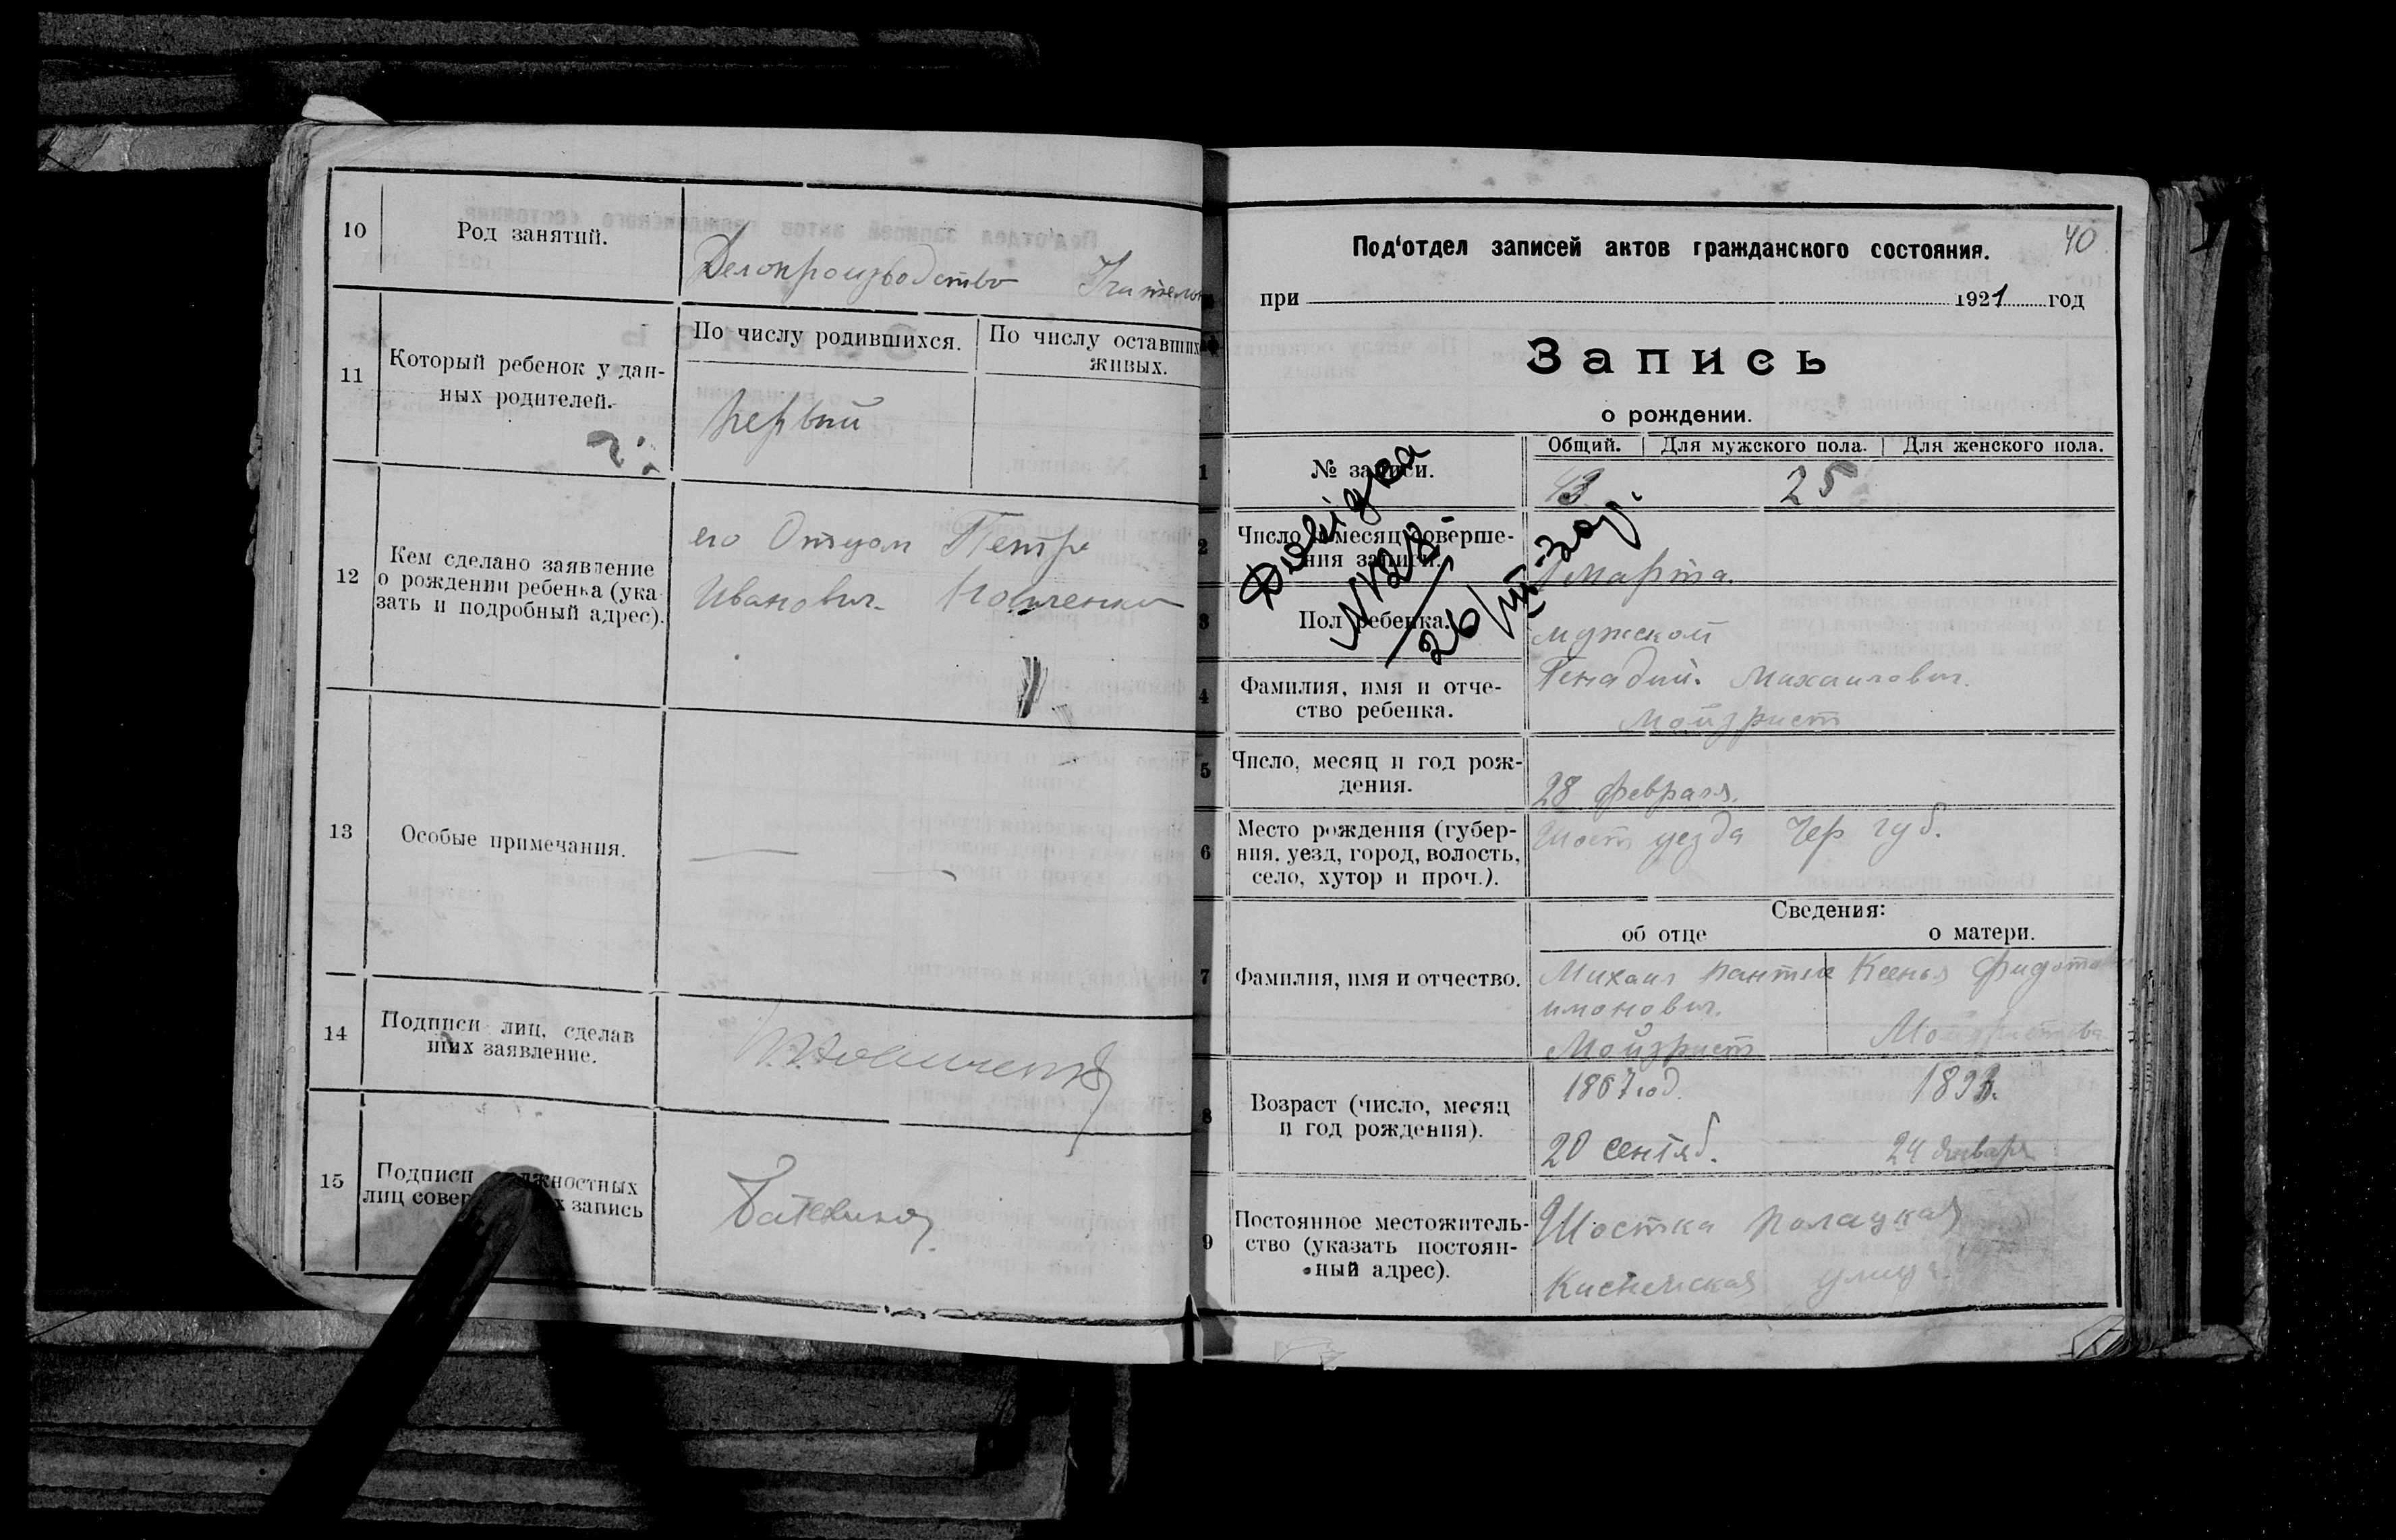 10
Род занятий.
Делопроизводство
11
Который ребенок у дан-
ных родителей.
По числу родившихся.
По числу оставших
живых.
первый
12
Кем сделано заявление
о рождении ребенка (ука
зать и подробный адрес).
его Отцом Петр
Иванович
13
Особые примечания.
14
Подписи лиц, сделав
ших заявление.
15
Подписи
лиц запись
40
Под'отдел записей актов гражданского состояния.
при 1921 год
Запись
о рождении.
1
№ записи.
Общий. Для мужского пола. Для женского пола.
43 25
2
Число и месяц соверше-
ния записи.
1 Марта.
3
Пол ребенка.
мужской
4
Фамилия, имя и отче-
ство ребенка.
Генадий. Михаилович.
Мойзрист
5
Число, месяц и год рож-
дения.
28 февраля.
6
Место рождения (губер-
ния, уезд, город, волость,
село, хутор и проч.).
Шост уезда Чер губ.
Сведения:
об отце
о матери.
7
Фамилия, имя и отчество.
Михаил Пантеле
имонович.
Мойзрист
Ксенья
8
Возраст (число, месяц
и год рождения).
1867 год.
20 сентяб.
1893.
24 Января
9
Постоянное местожитель-
ство (указать постоян-
ный адрес).
Шостка
улица.